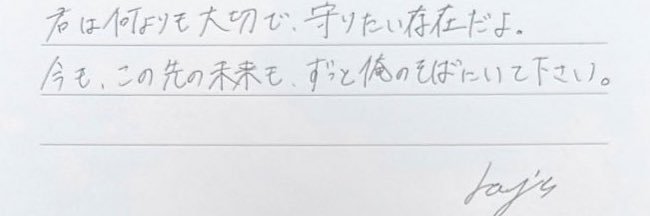 君は何よりも大切で、守りたい存在だよ。
今も、この先の未来も、ずっと俺のそばにいて下さい。